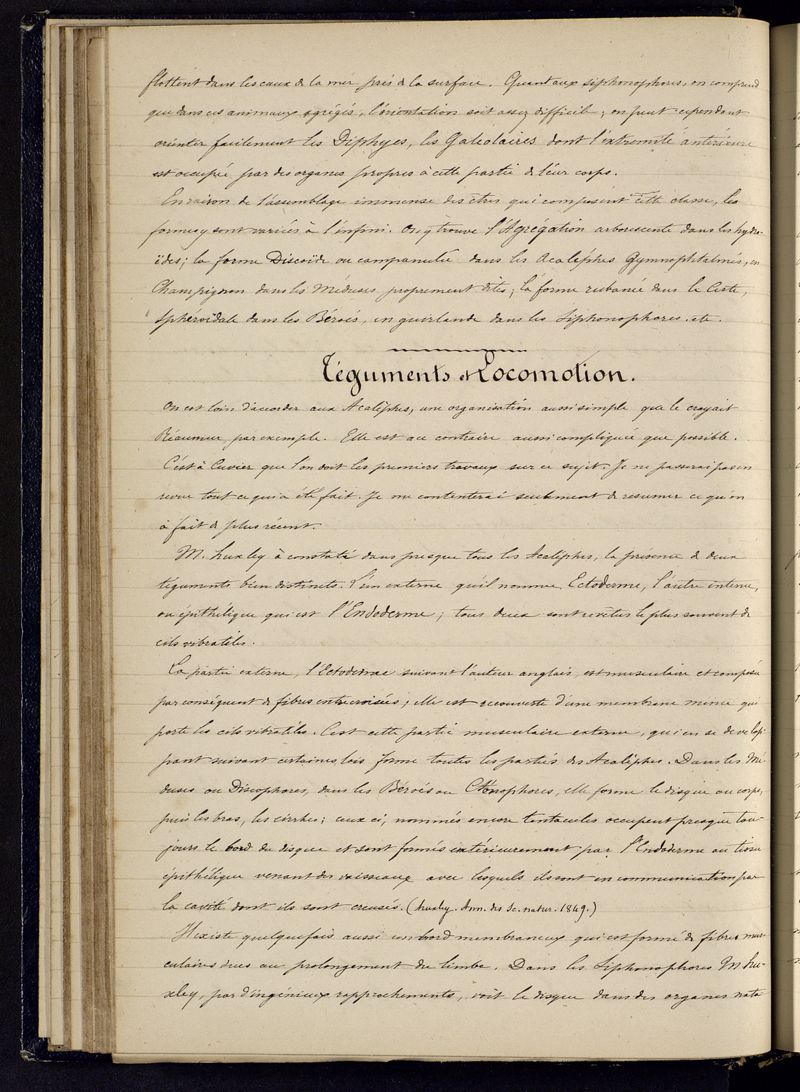 flottent dans les eaux de la mer près de la surface. Quant aux siphonophores, on comprend
que dans ces animaux agrégés, l'orientation soit assez difficile; on peut cependant
orienter facilement les Diphyes, les Galéolaires dont l'extremité antérieure
est occupée par des organes propres à cette partie de leur corps.
En raison de l'assemblage immense des êtres qui composent cette classe, les
formes y sont variées à l'infini. On y trouve l'Agrégation arborescente dans les hydro-
ïdes; la forme Discoïde ou campanulée dans les Acalèphes Gymnophtalmés, en
Champignon dans les Méduses proprement dites; la forme rubanée dans le Ceste,
sphéroïdale dans les Béroés, en guirlande dans les Siphonophores. etc.
Téguments et Locomotion.
On est loin d'accorder aux Acalèphes, une organisation aussi simple que le croyait
Réaumur, par exemple. Elle est au contraire aussi compliquée que possible.
C'est à Cuvier que l'on doit les premiers travaux sur ce sujet. Je ne passerai pas en
revue tout ce qui a été fait. Je me contenterai seulement de resumer ce qu'on
à fait de plus récent.
M. huxley à constaté dans presque tous les Acalèphes, la présence de deux
téguments bien distincts. L'un externe qu'il nomme Ectoderme, l'autre interne,
ou épithélique qui est l'Endoderme; tous deux sont revêtus le plus souvent de
cils vibratiles.
La partie externe, l'Ectoderme suivant l'auteur anglais, est musculaire et composée
par conséquent de fibres entrecroisées; elle est recouverte d'une membrane mince qui
porte les cils vibratiles. C'est cette partie musculaire externe, qui en se dévelop-
pant suivant certaines lois forme toutes les parties des Acalèphes. Dans les Mé-
duses ou Discophores, dans les Béroés ou Cténophores, elle forme le disque ou corps,
puis les bras, les cirrhes; ceux ci, nommés encore tentacules occupent presque tou-
jours le bord du disque et sont formés intérieurement par l'Endoderme ou tissu
épithélique venant des vaisseaux avec lesquels ils sont en communication par
la cavité dont ils sont creusés. (huxley. Ann. des Sc. natur. 1849.)
Il existe quelquefois aussi un bord membraneux qui est formé de fibres mus-
culaires dues au prolongement du limbe. Dans les Siphonophores M. hu-
xley, par d'ingénieux rapprochements, voit le disque dans des organes nata